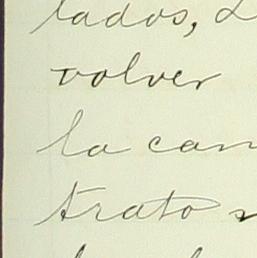 lados,
volver
la can
trato